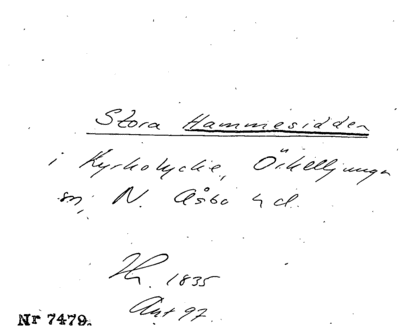 Stora Hammesidden
i Kyrkolyckie, Örkelljunga
sn, N. Åsbo hd.
Th. 1835
Akt 97.
Nr 7479.